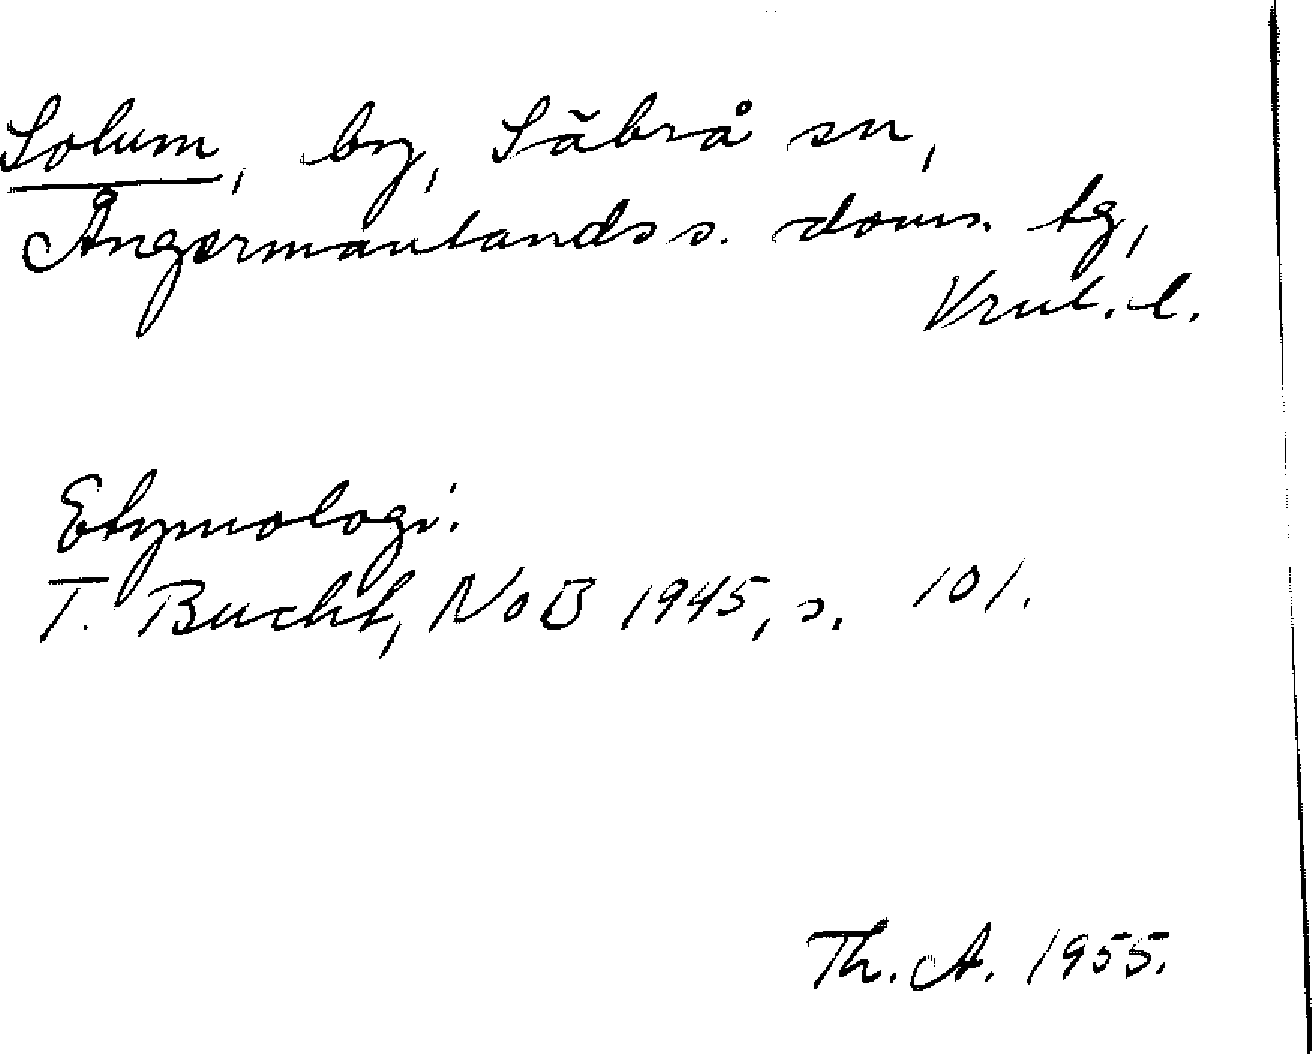 Solum, by, Säbrå sn,
Ångermanlands s. doms. tg,
Vrnl. l.
Etymologi.
T. Bucht, NoB 1945, s. 101.
Th. A. 1955.